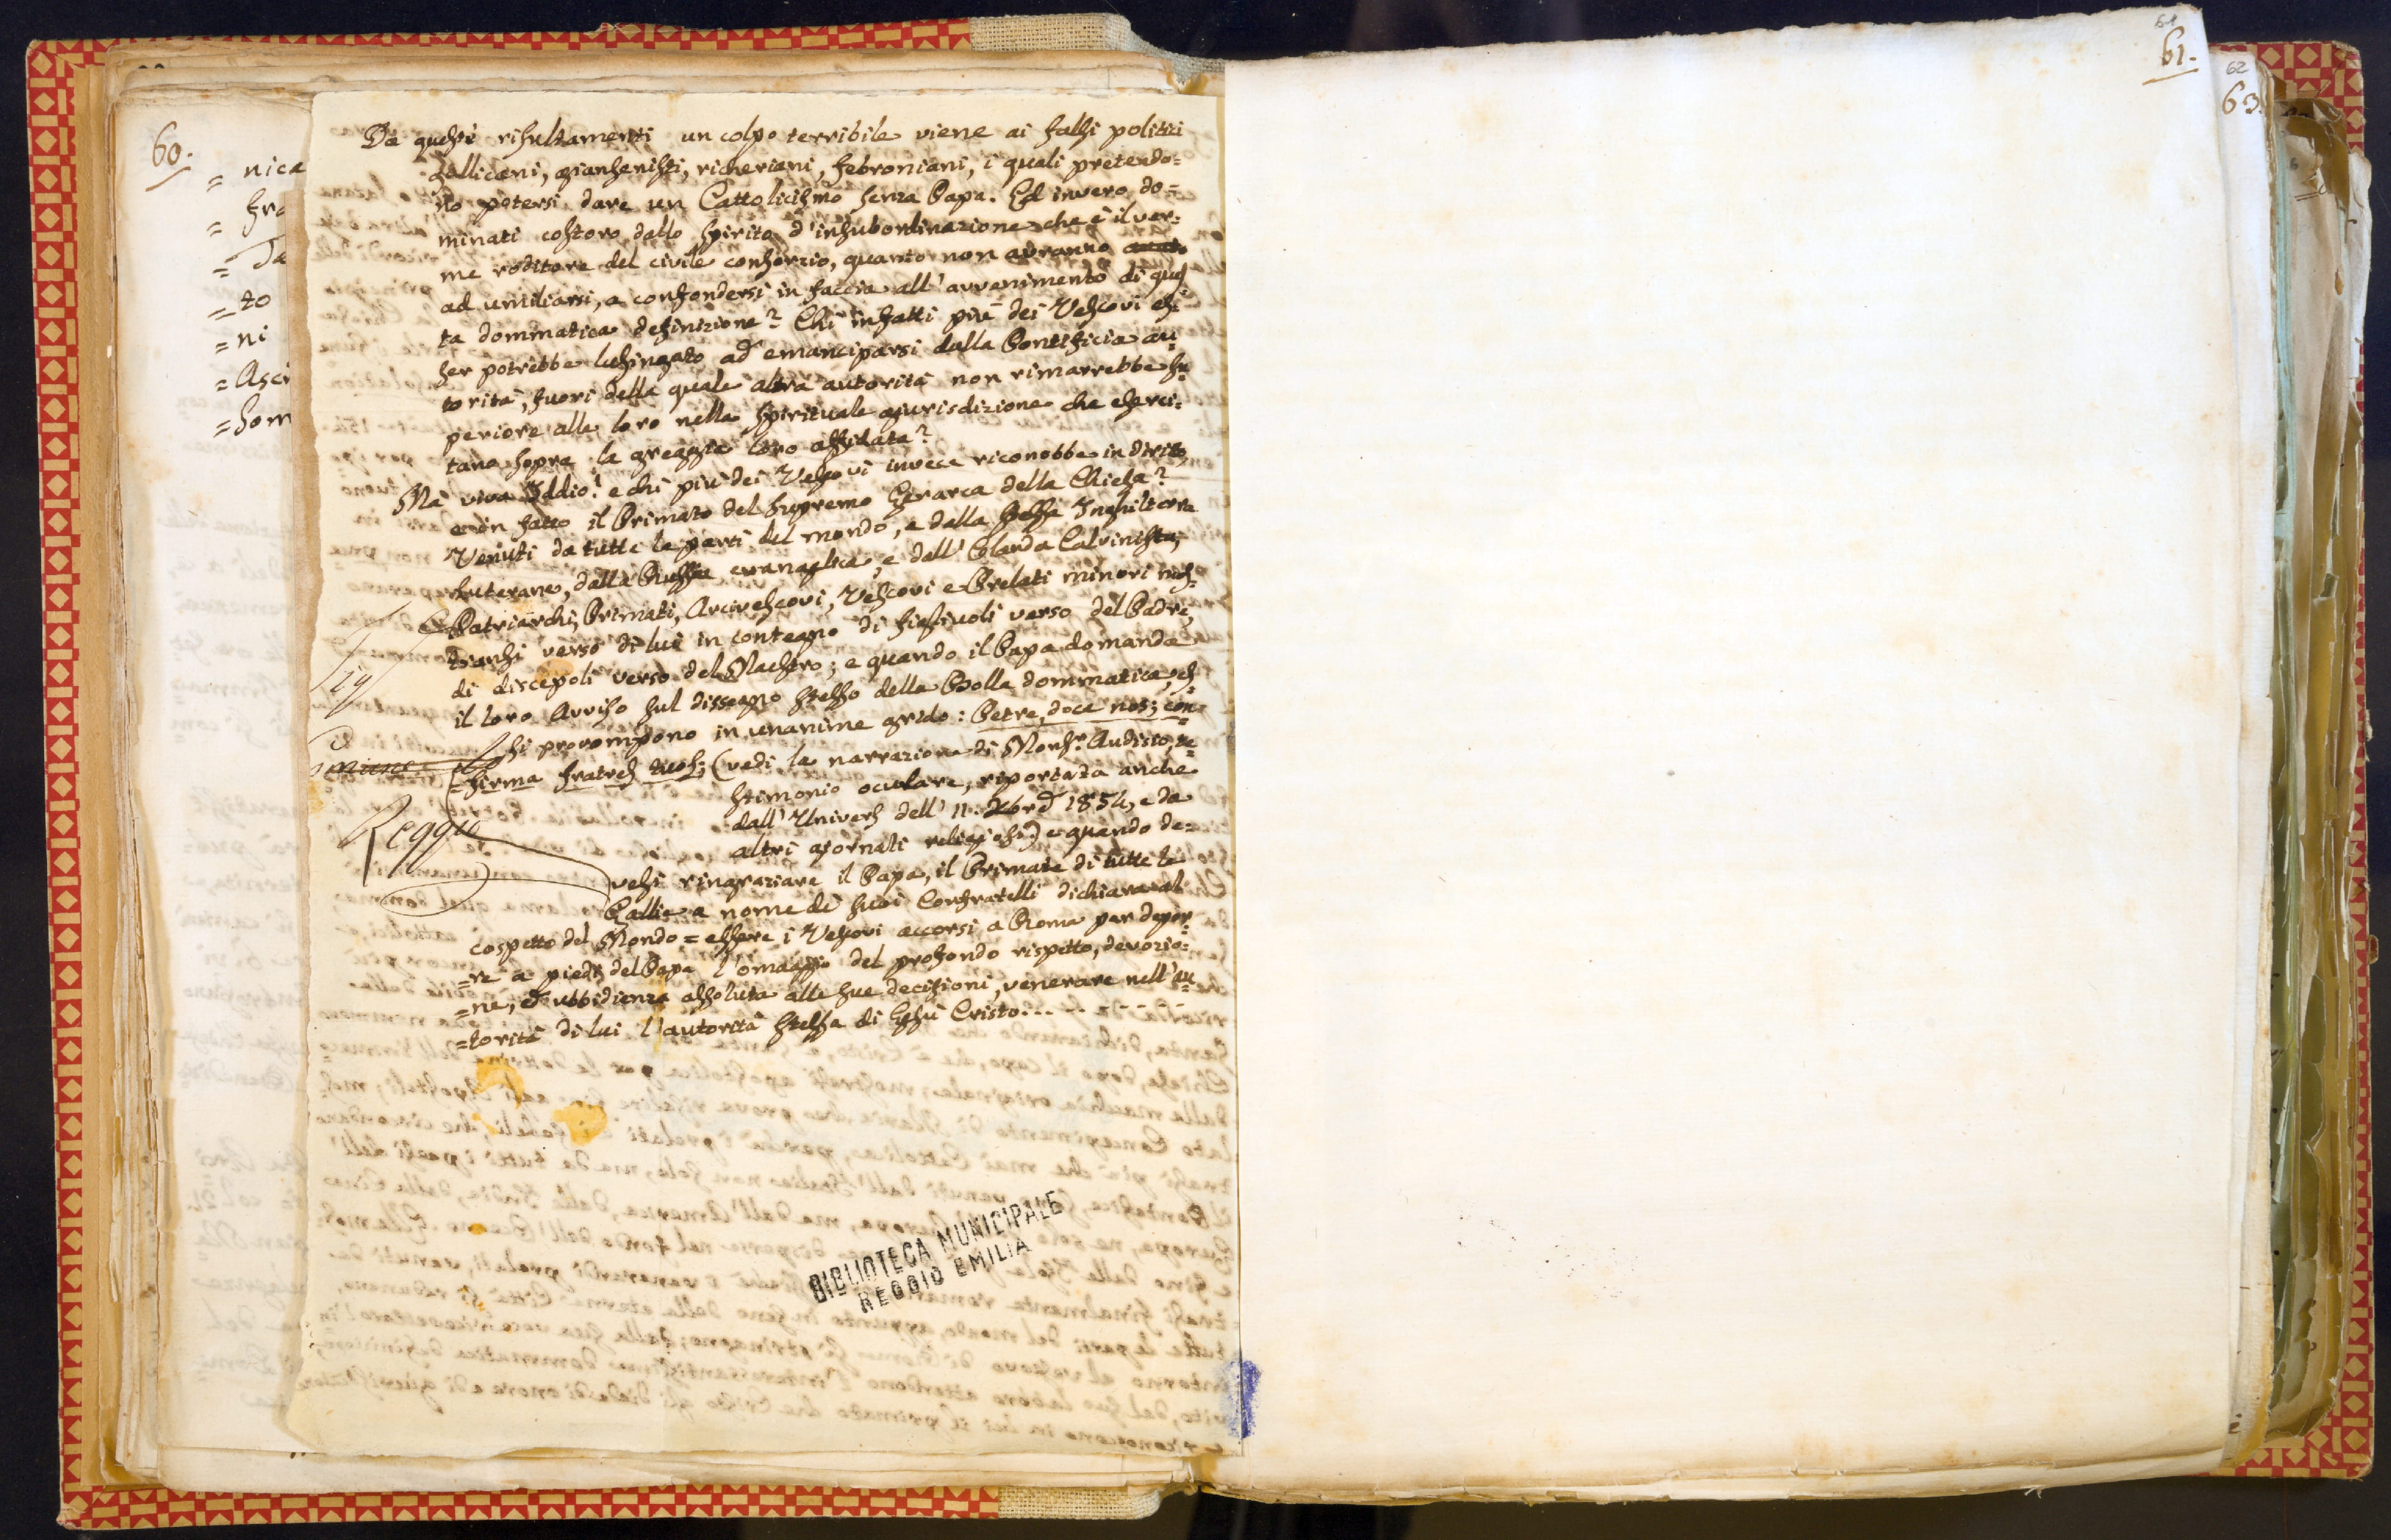 60.
= nica
= fra
= Da
= to
= ni
= Asci
= Som
Da questi risultamenti un colpo terribile viene ai falsi politici
gallicani, giansenisti, richeriani, febroniani, i quali pretendo=
no potersi dare un Cattolicismo senza Papa. Ed invero do=
minati costoro dallo spirito d'insubordinazione che è il ver=
me roditore del civile consorzio, quanto non avranno
ad umiliarsi, a confondersi in faccia all'avvenimento di ques=
ta dommatica definizione? Chi infatti più dei Vescovi es=
ser potrebbe lusingato ad emanciparsi dalla Pontificia au=
torità, fuori della quale altra autorità non rimarrebbe su=
periore alla loro nella spirituale giurisdizione che eserci=
tano sopra la greggia loro affidata?
Ma viva Iddio! e chi più dei Vescovi invece riconobbe in diritto,
e in fatto il Primato del supremo Gerarca della Chiesa?
Venuti da tutte le parti del mondo, e dalla stessa Inghilterra
luterana, dalla Prussia evangelica, e dall'Olanda Calvinista,
Patriarchi, Primati, Arcivescovi, Vescovi e Prelati minori mos=
transi verso di lui in contegno di figliuoli verso del Padre,
di discepoli verso del Maestro; e quando il Papa domanda
il loro Avviso sul disseg̃no stesso della Bolla dommatica, es=
si prorompono in unanime grido: Petre, doce nos; con=
=firma fratres tuos; (vedi la narrazione di Monsr. Audisio, te=
stimonio oculare, riportata anche
dall'Univers dell' 11. Xbre 1854, e da
altri giornali religiosi) e quando de=
vesi ringraziare il Papa, il Primate di tutte le
Gallie a nome di suoi Confratelli dichiara al
cospetto del Mondo = essere i Vescovi accorsi a Roma per depor=
=re a piedi del Papa l'omaggio del profondo rispetto, devozio=
=ne, ed ubbidienza assoluta alle sue decisioni, venerare nell'au=
=torità di lui l'autorità stessa di Gesù Cristo. - - - - - - -
Reggio
BIBLIOTECA MUNICIPALE
REGGIO EMILIA
61
61.
62
63.